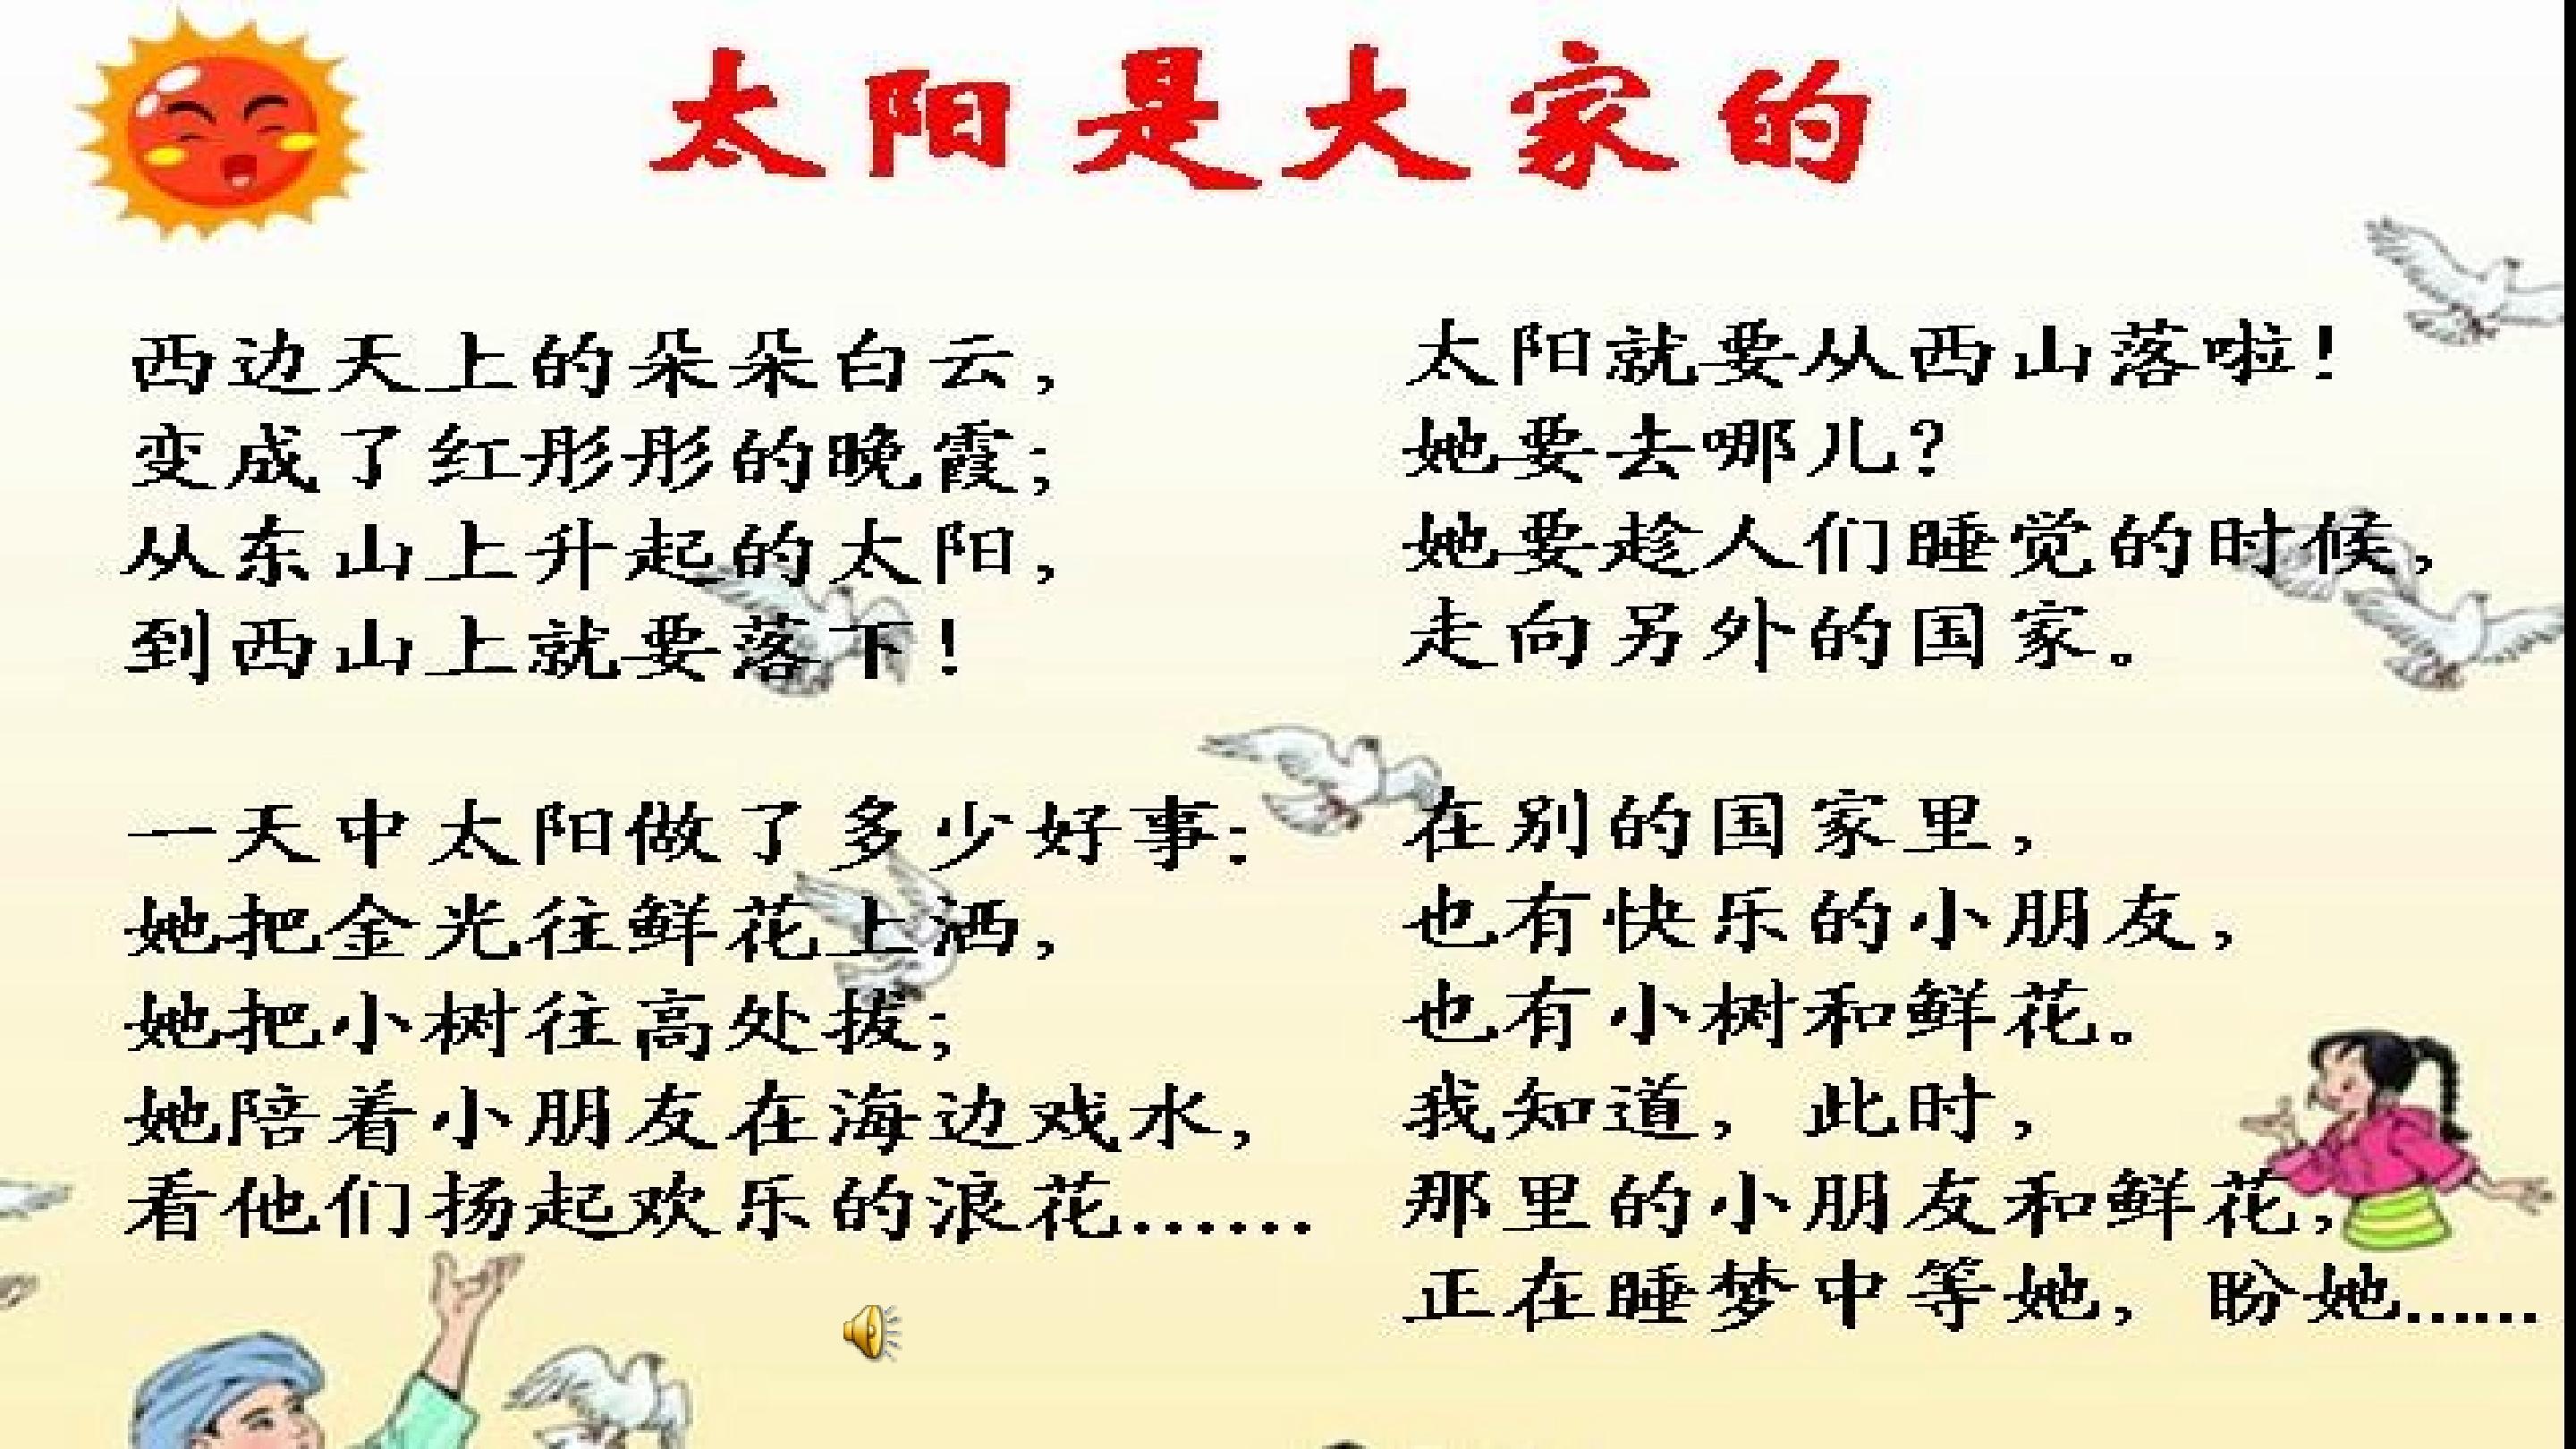 太阳是大家的
西边天上的朵朵白云，
变成了红彤彤的晚霞；
从东山上升起的太阳，
到西山上就要落下！
一天中太阳做了多少好事：
她把金光往鲜花上洒，
她把小树往高处拔；
她陪着小朋友在海边戏水，
看他们扬起欢乐的浪花……
太阳就要从西山落啦！
她要去哪儿？
她要趁人们睡觉的时候，
走向另外的国家。
在别的国家里，
也有快乐的小朋友，
也有小树和鲜花。
我知道，此时，
那里的小朋友和鲜花，
正在睡梦中等她，盼她……